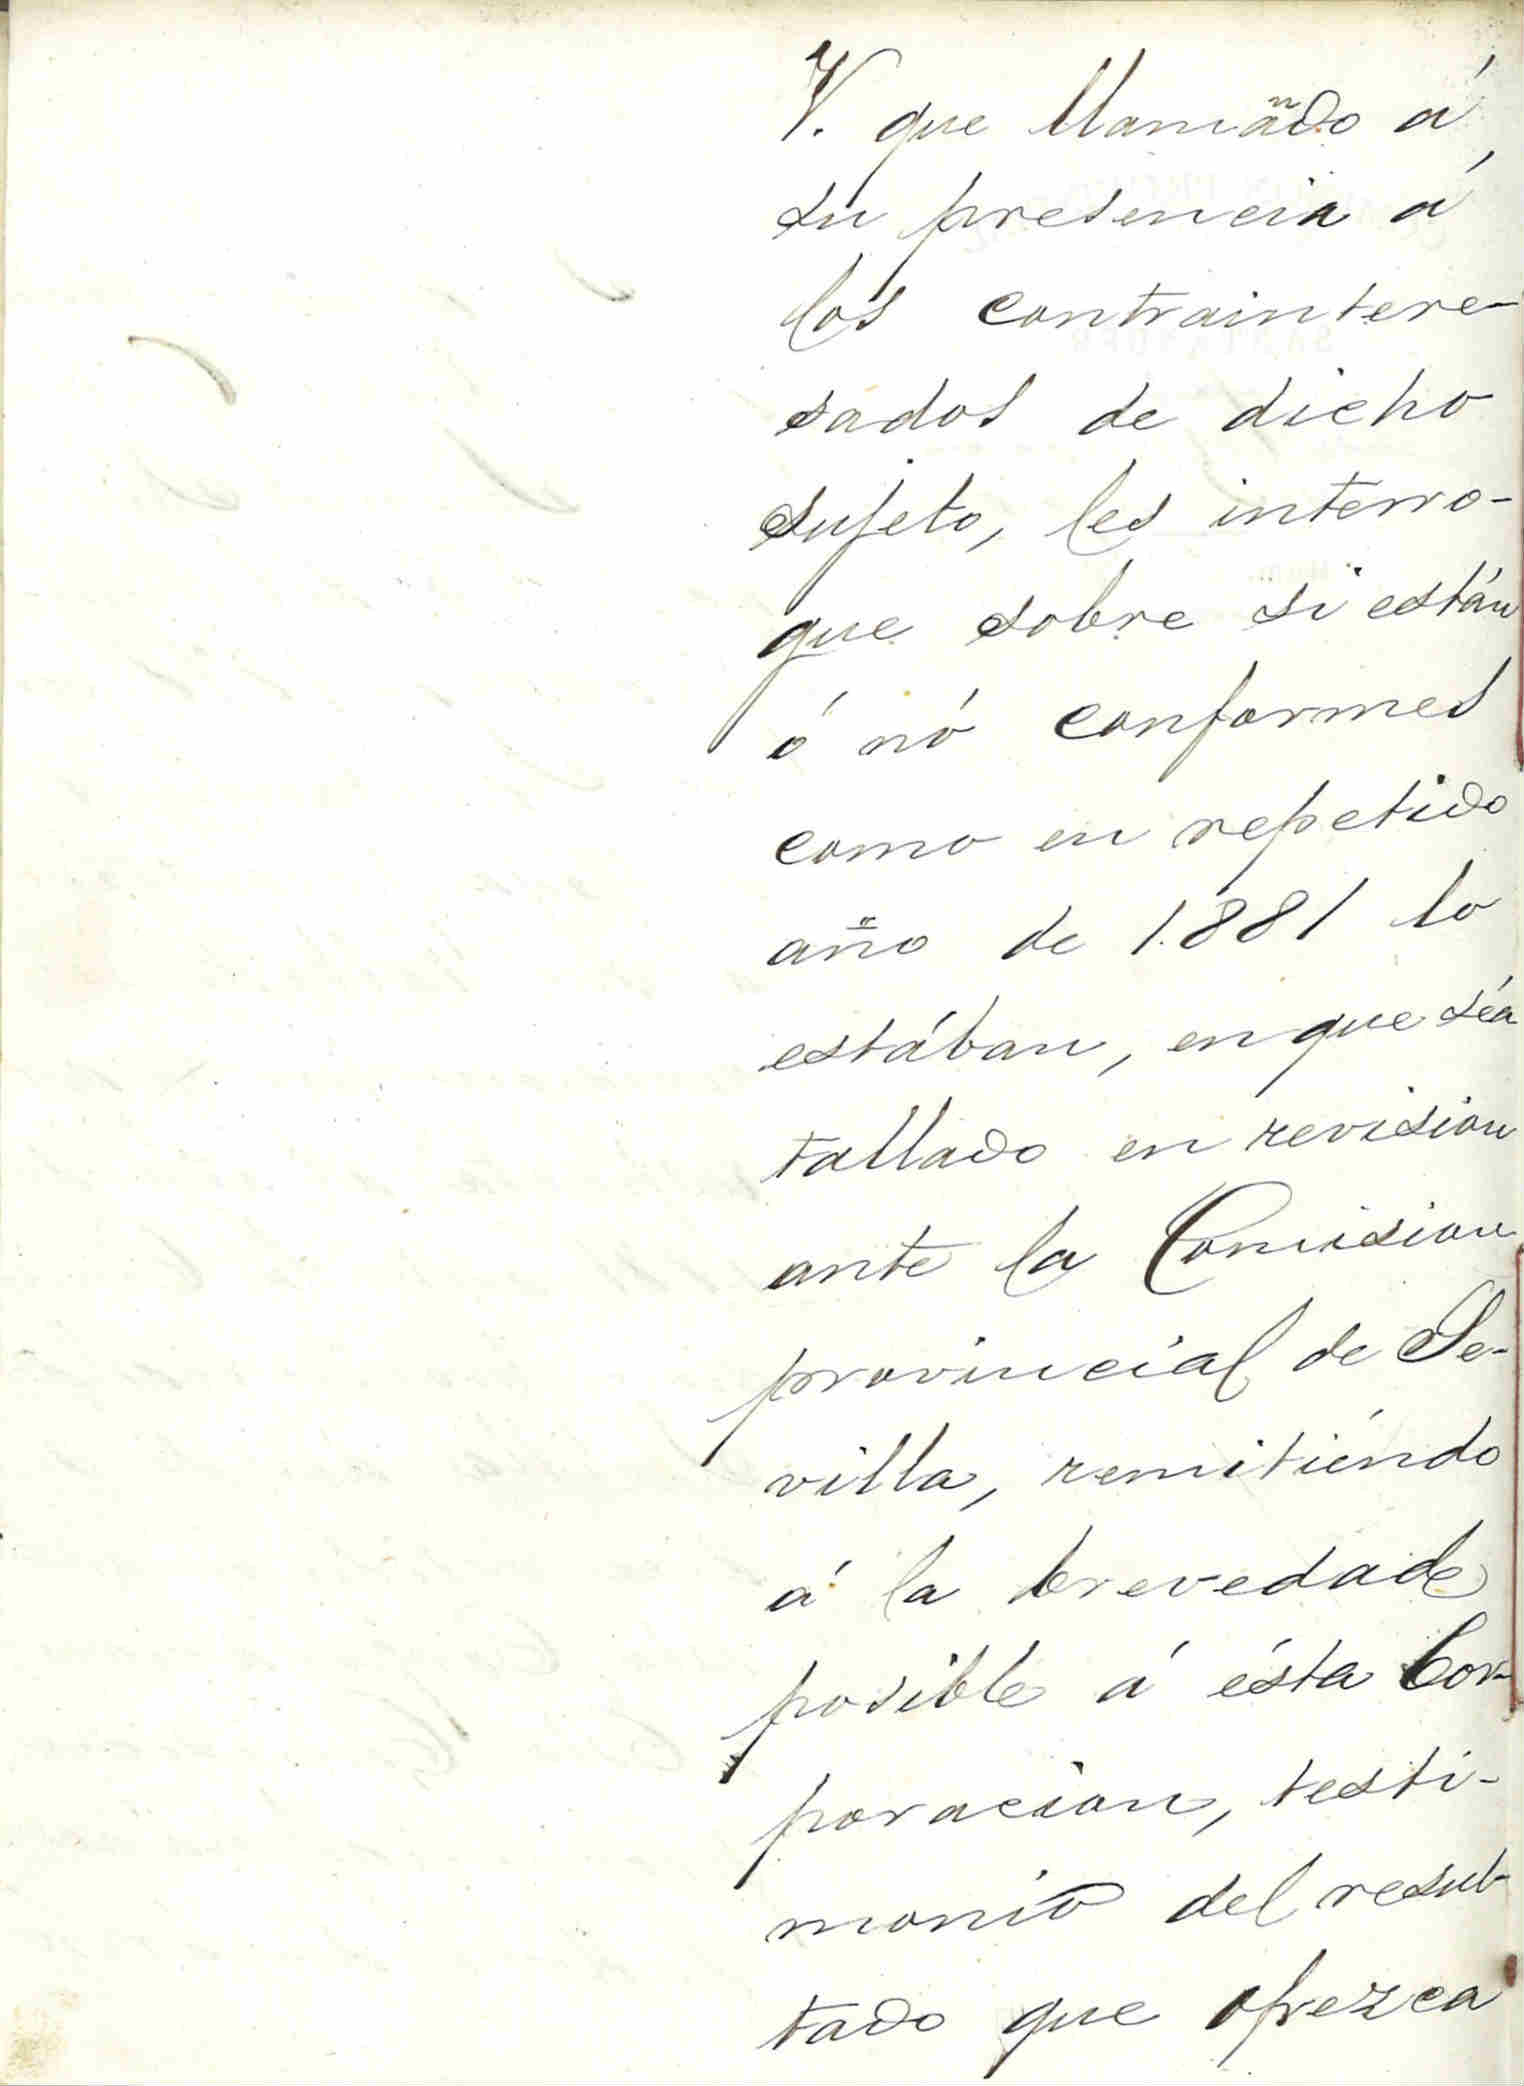 V. que llamando á
su presencia á
los contraintere-
sados de dicho
sujeto, les interro-
gue sobre si están
ó nó conformes
como en repetido
año de 1.881 lo
estában, en que séa
tallado en revision
ante la Comision
provincial de Se-
villa, remitiéndo
á la brevedad
posible á ésta Cor-
poracion, testi-
monio del resul-
tado que ofrezca